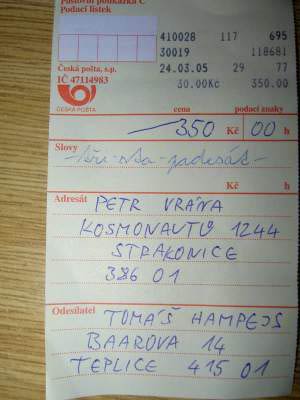 Poštovní poukázka C
Podací lístek
410028 117 695
30019 118681
24.03.05 29 77
30.00Kc 350.00
Česká pošta, s.p.
IČ 47114983
ČESKÁ POŠTA
cena podací znaky
350 Kč 00 h
Slovy
-tři-sta-padesát-
Kč h
Adresát PETR VRÁNA
KOSMONAUTŮ 1244
STRAKONICE
386 01
Odesílatel TOMÁŠ HAMPEJS
BAAROVA 14
TEPLICE 415 01